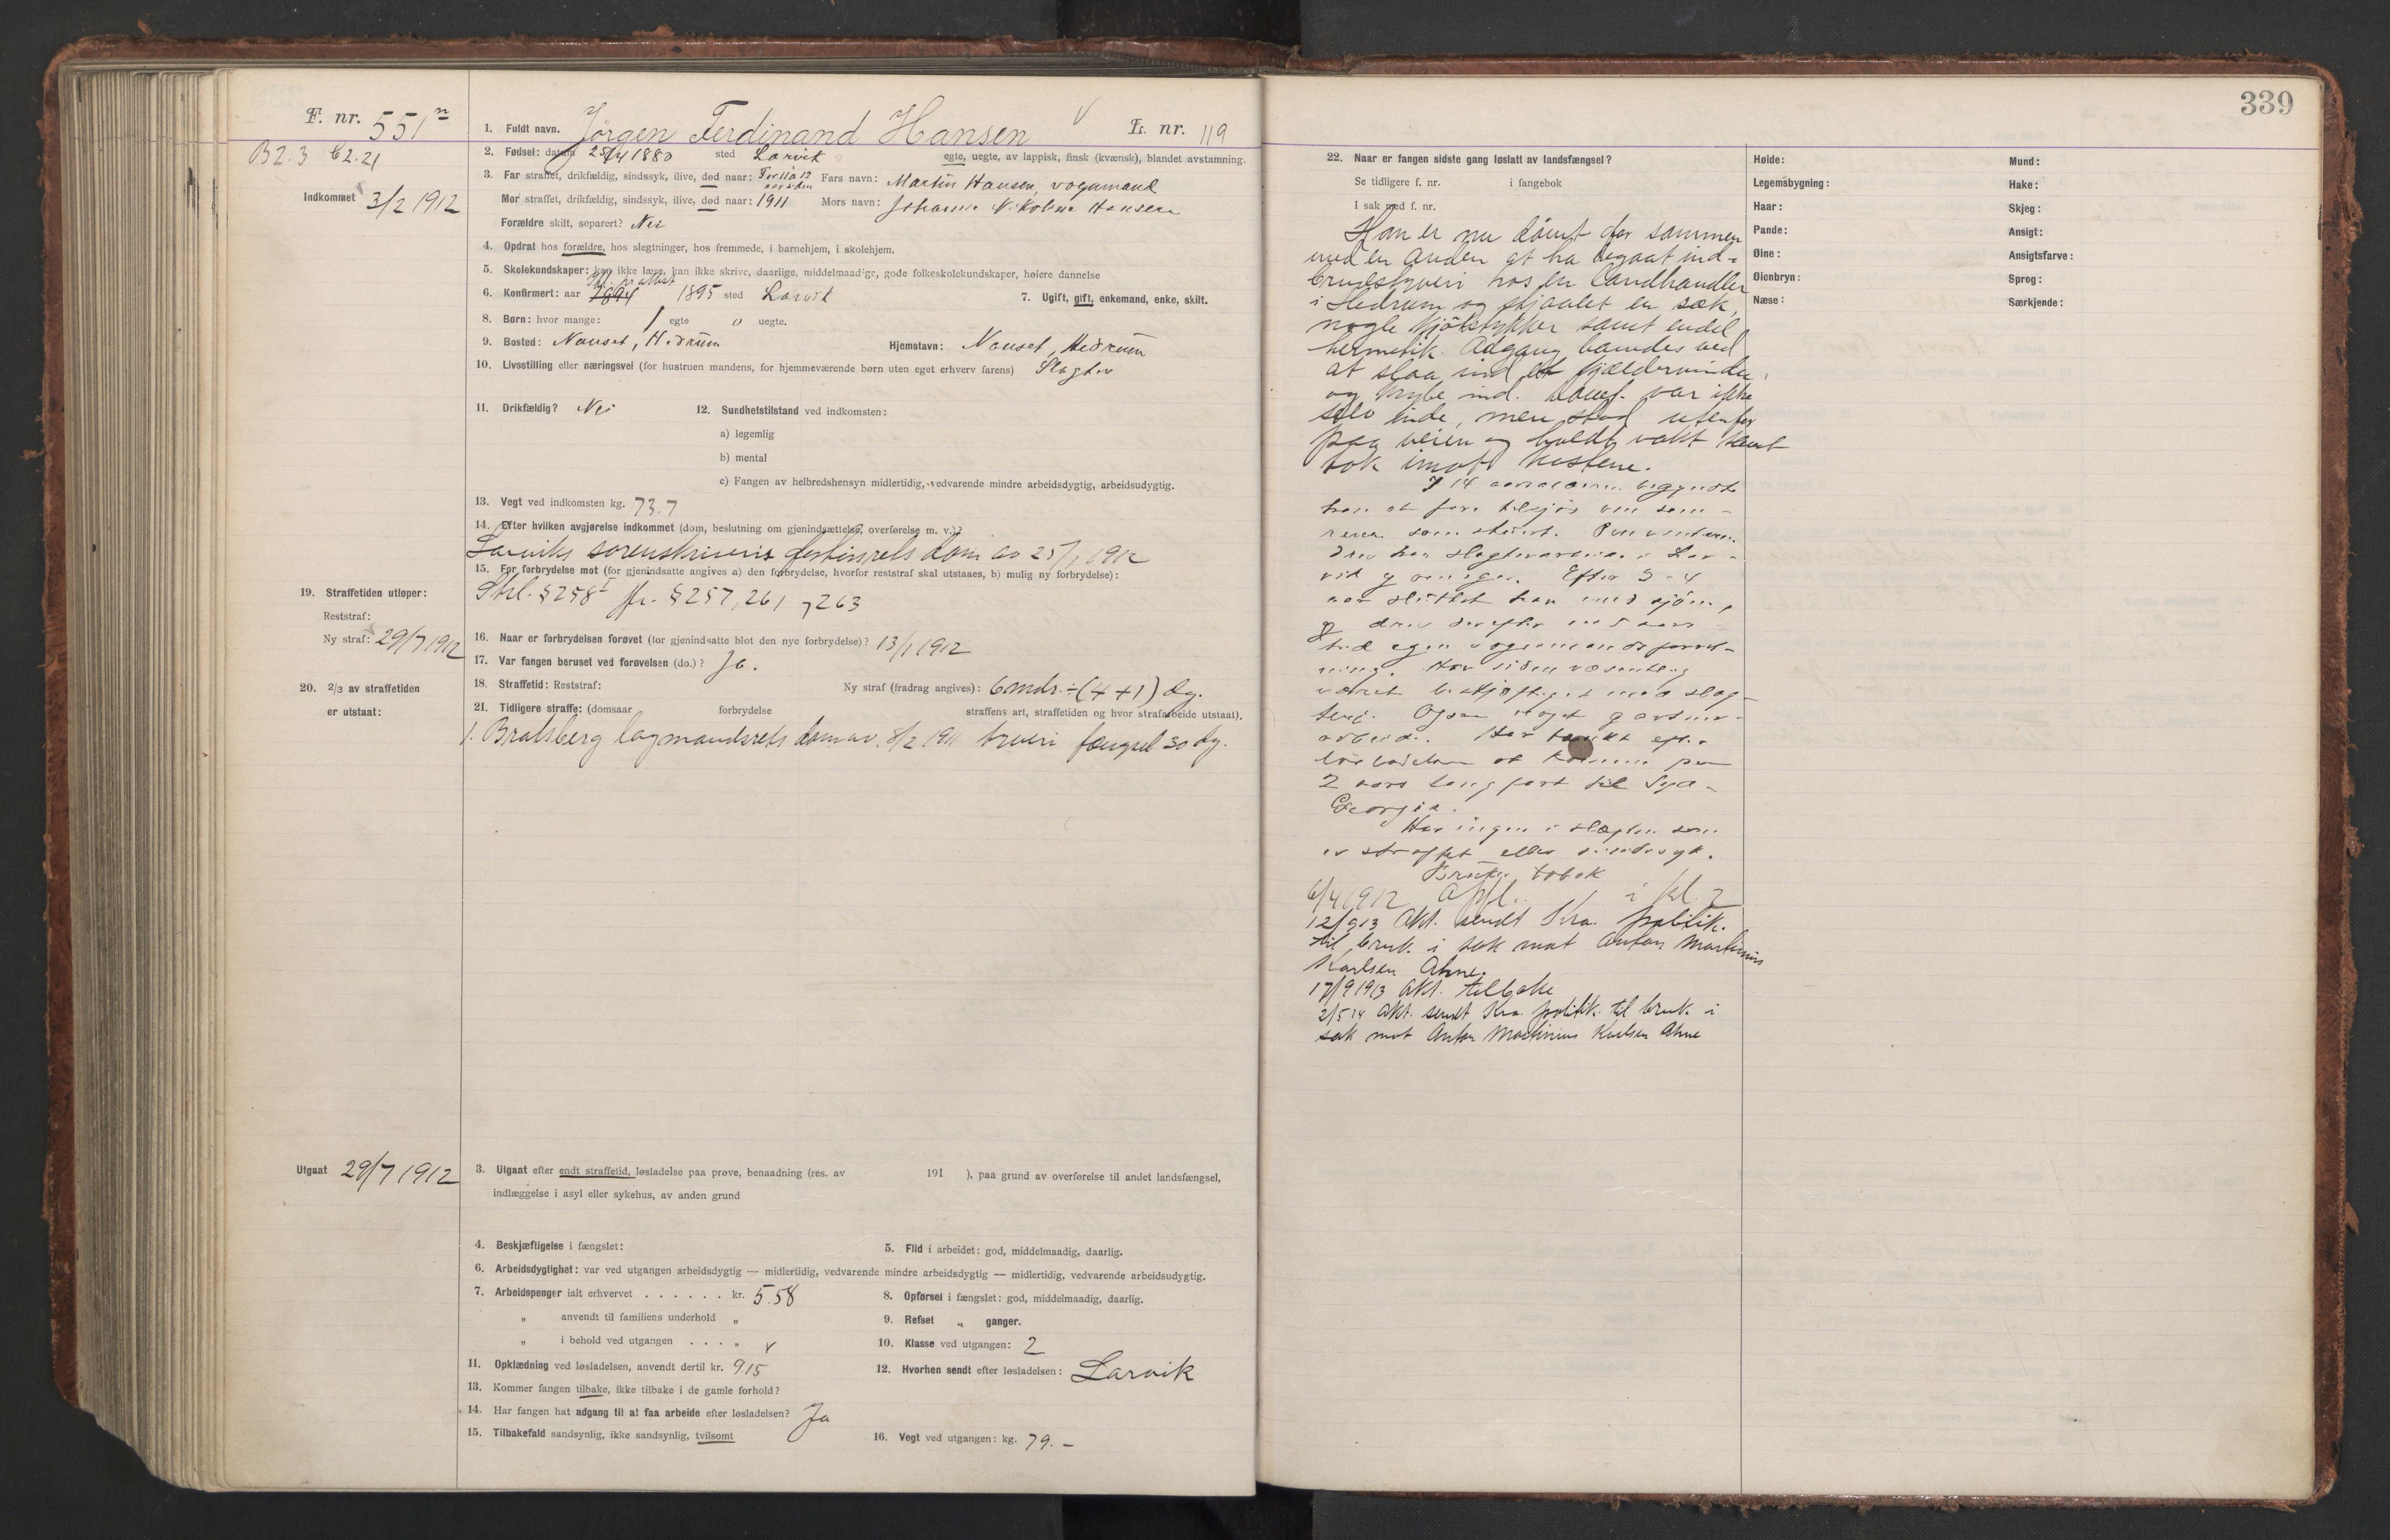 F. nr. 551
B2.3 C2.21
Indkommet 3/2 1912
1. Fuldt navn. Jörgen Ferdinand Hansen
L. nr. 119
2. Fødsel: datum 25/4 1880 sted Larvik egte, uegte, av lappisk, finsk (kvænsk), blandet avstamning.
3. Far straffet, drikfældig, sindssyk, ilive, død naar: For 11 a 12 aar siden Fars navn: Martin Hansen, vognmand
Mor straffet, drikfældig, sindssyk, ilive, død naar: 1911 Mors navn: Johanne Nikoline Hansen
Forældre skilt, separert? Nei
4. Opdrat hos forældre, hos slegtninger, hos fremmede, i barnehjem, i skolehjem.
5. Skolekundskaper: kan ikke læse, kan ikke skrive, daarlige, middelmaadige, gode folkeskolekundskaper, høiere dannelse
6. Konfirmert: aar 1894 1895 sted Larvik 7. Ugift, gift, enkemand, enke, skilt.
8. Børn: hvor mange: 1 egte 0 uegte.
9. Bosted: Nanset, Hedrum Hjemstavn: Nanset, Hedrum
10. Livsstilling eller næringsvei (for hustruen mandens, for hjemmeværende børn uten eget erhverv farens) Slagter
11. Drikfældig? Nei 12. Sundhetstilstand ved indkomsten:
a) legemlig
b) mental
c) Fangen av helbredshensyn midlertidig, vedvarende mindre arbeidsdygtig, arbeidsudygtig.
13. Vegt ved indkomsten kg. 73.7
14. Efter hvilken avgjørelse indkommet (dom, beslutning om gjenindsættelse, overførelse m. v.)?
Larviks sorenskriveris forhörsrets dom av 25/1 1912
15. For forbrydelse mot (for gjenindsatte angives a) den forbrydelse, hvorfor reststraf skal utstaaes, b) mulig ny forbrydelse):
Strl. § 258 I jfr. § 257, 261 og 263
19. Straffetiden utløper:
Reststraf:
Ny straf: 29/7 1912
16. Naar er forbrydelsen forøvet (for gjenindsatte blot den nye forbrydelse)? 13/1 1912
17. Var fangen beruset ved forøvelsen (do.)? Ja.
20. 2/3 av straffetiden
er utstaat:
18. Straffetid: Reststraf: Ny straf (fradrag angives): 6 mdr. ÷ (4+1) dg.
21. Tidligere straffe: (domsaar forbrydelse straffens art, straffetiden og hvor strafarbeide utstaat).
1. Bratsberg lagmandsrets dom av 8/2 1911 tyveri fængsel 30 dg.
Utgaat 29/7 1912
3. Utgaat efter endt straffetid, løsladelse paa prøve, benaadning (res. av 191 ), paa grund av overførelse til andet landsfængsel,
indlæggelse i asyl eller sykehus, av anden grund
4. Beskjæftigelse i fængslet: 5. Flid i arbeidet: god, middelmaadig, daarlig.
6. Arbeidsdygtighet: var ved utgangen arbeidsdygtig — midlertidig, vedvarende mindre arbeidsdygtig — midlertidig, vedvarende arbeidsudygtig.
7. Arbeidspenger ialt erhvervet . . . . . . kr. 5.58 8. Opførsel i fængslet: god, middelmaadig, daarlig.
„ anvendt til familiens underhold „ 9. Refset „ ganger.
„ i behold ved utgangen . . . „ 10. Klasse ved utgangen: 2
11. Opklædning ved løsladelsen, anvendt dertil kr. 9.15 12. Hvorhen sendt efter løsladelsen: Larvik
13. Kommer fangen tilbake, ikke tilbake i de gamle forhold?
14. Har fangen hat adgang til at faa arbeide efter løsladelsen? Ja
15. Tilbakefald sandsynlig, ikke sandsynlig, tvilsomt 16. Vegt ved utgangen: kg. 79.-
339
22. Naar er fangen sidste gang løslatt av landsfængsel?
Se tidligere f. nr. i fangebok
I sak med f. nr.
Han er nu dömt for sammen
med en anden at ha begaat ind-
brudstyveri hos en landhandler
i Hedrum og stjaalet en sæk,
nogle kjötstykker samt endel
hermetik. Adgang banedes ved
at slaa ind et kjældervindu
og krybe ind. Domf. var ikke
selv inde, men stod utenfor
paa veien og holdt vakt samt
tok imot kosterne.
I 14 aarsalderen begyndte
han at fare tilsjös om som-
reren som stuert. Om vinteren
drev han slagterarbeide i Lar-
vik og omegn. Efter 3-4
aar sluttet han med sjöen,
og drev derefter en 5 aars
tid egen vognmandsforret-
ning. Har siden væsentlig
været beskjæftiget med slag-
teri. Ogsaa noget gartner-
arbeide. Har tænkt efter
lösladelsen at komme paa
2 aars lang fart til Syd-
Georgia.
Har ingen i slægten som
er straffet eller sindssyk.
Bruker tobak
6/4 1912 Opfl. i kl. 2
12/9 13 Akt. sendt Kra. politik.
til bruk i sak mot Anton Martinius
Karlsen Ahne.
17/9 1913 Akt. tilbake
2/5 14 Akt. sendt Kra. politik. til bruk i
sak mot Anton Martinius Karlsen Ahne
Høide: Mund:
Legemsbygning: Hake:
Haar: Skjeg:
Pande: Ansigt:
Øine: Ansigtsfarve:
Øienbryn: Sprog:
Næse: Særkjende: